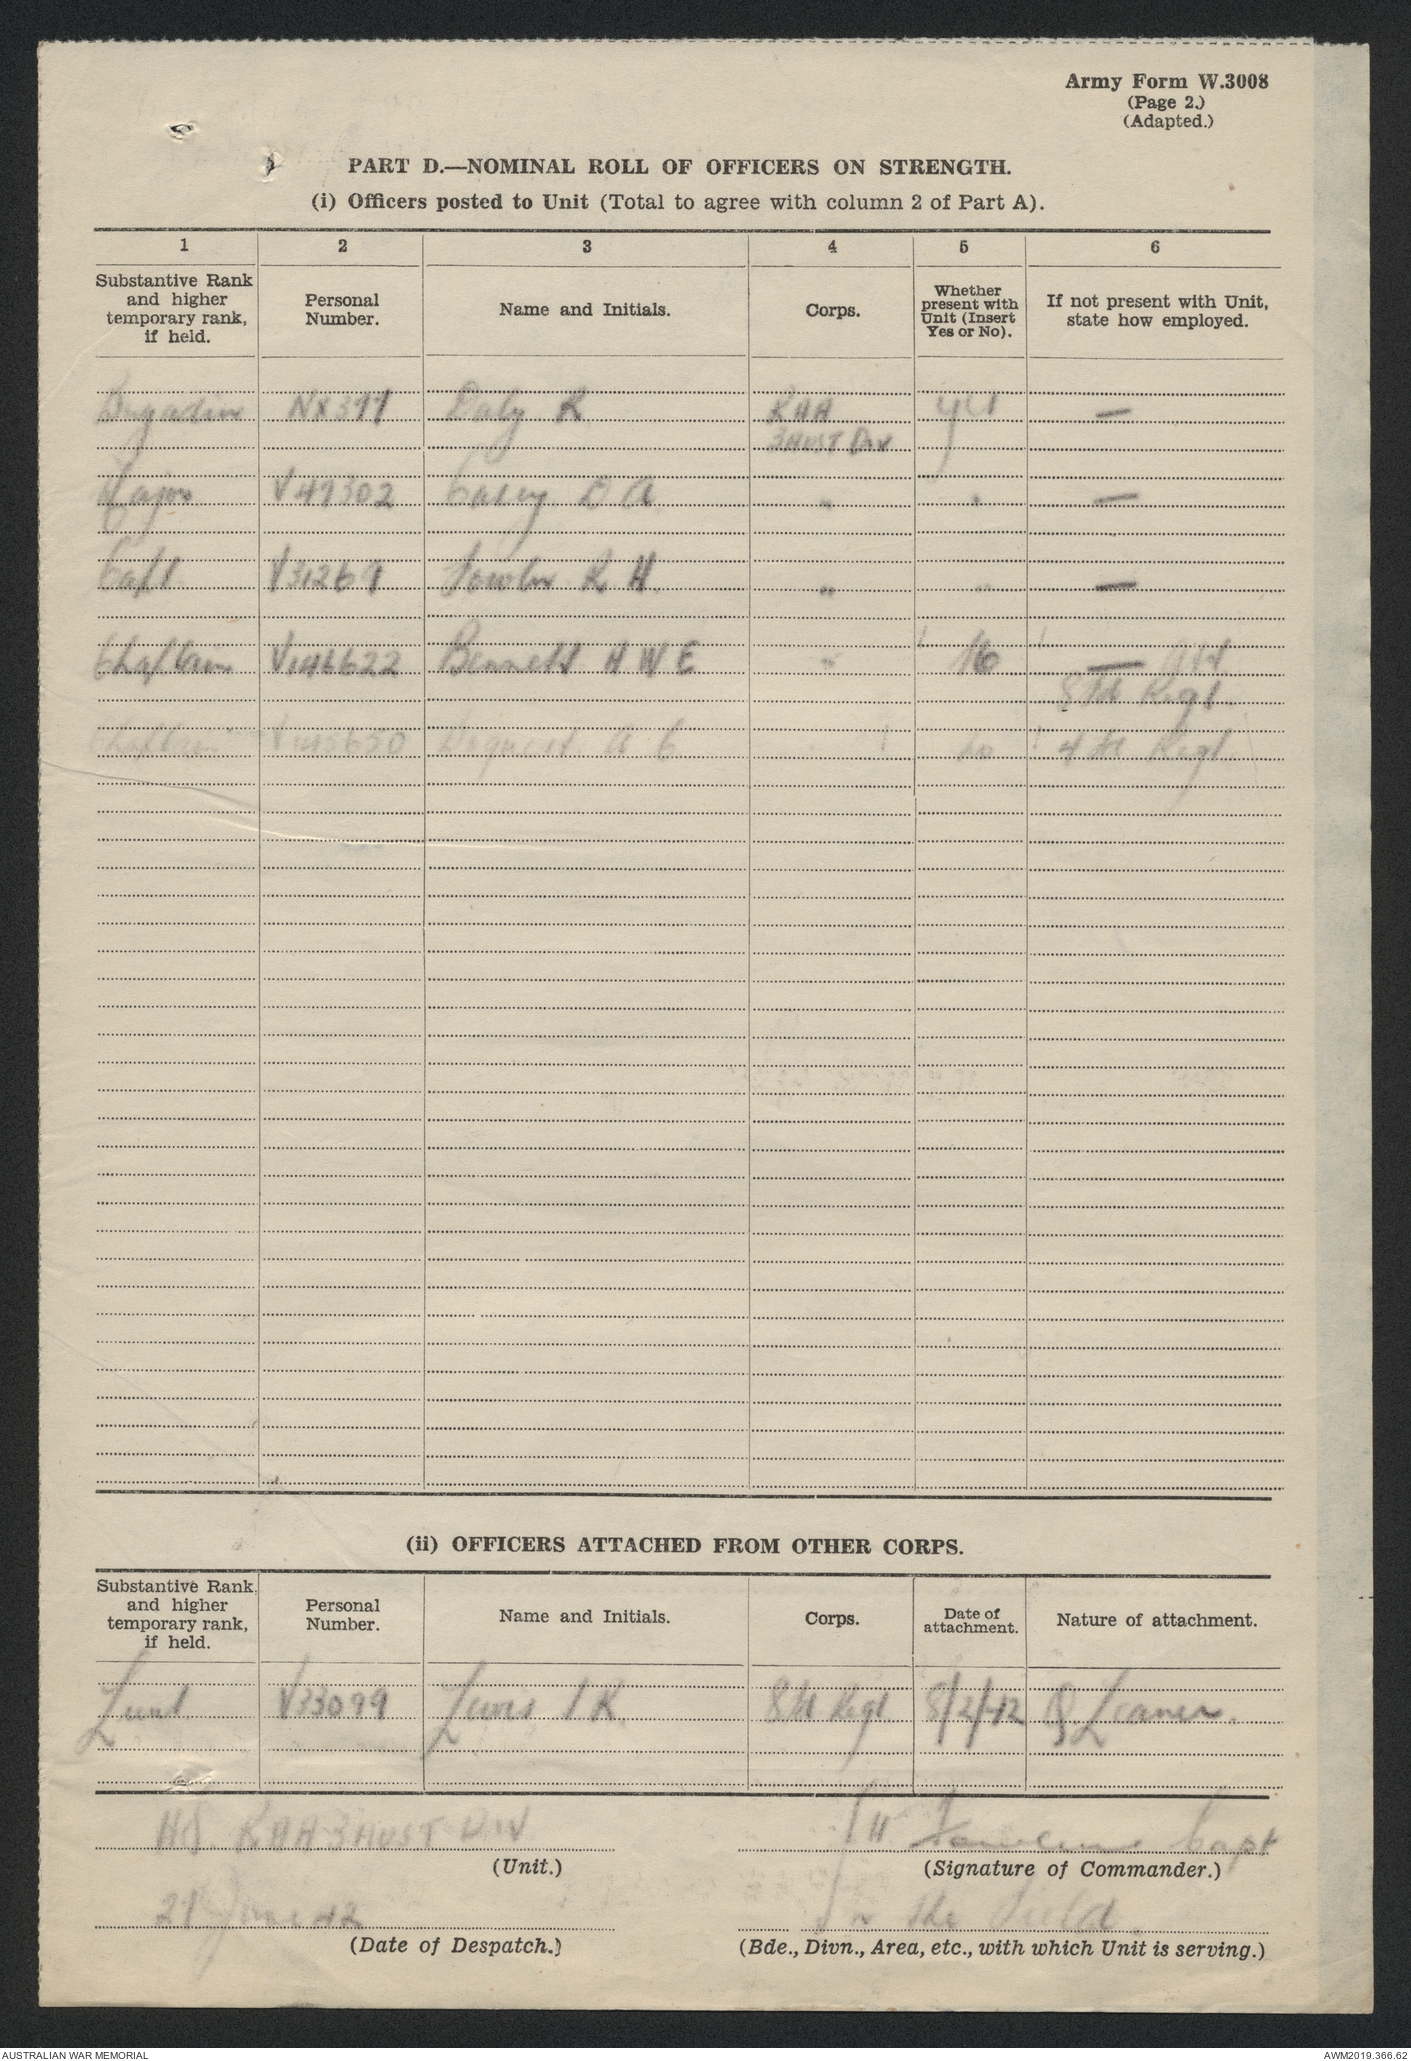 Army Form W.3008
(Page 2.)
(Adapted.)
PART D.—NOMINAL ROLL OF OFFICERS ON STRENGTH.
(i) Officers posted to Unit (Total to agree with column 2 of Part A).
1 2 3 4 5 6
Substantive Rank and higher temporary rank, if held.
Personal Number.
Name and Initials.
Corps.
Whether present with Unit (Insert Yes or No).
If not present with Unit, state how employed.
Brigadier NX377 Daly R RAA yes —
3 AUST Div
Major V47302 Casey D A " " —
Capt V31269 Fowler R H. " " —
Chaplain V146622 Bennett H W E " No — att
8th Regt.
Chaplain V145650 A C no 4th Regt.
(ii) OFFICERS ATTACHED FROM OTHER CORPS.
Substantive Rank and higher temporary rank, if held.
Personal Number.
Name and Initials.
Corps.
Date of attachment.
Nature of attachment.
Lieut V33099 Lewis I R. 8th Regt. 8/2/42 Q Learner.
HQ. RAA 3 AUST DIV Capt
(Unit.) (Signature of Commander.)
June 42 In the Field.
(Date of Despatch.) (Bde., Divn., Area, etc., with which Unit is serving.)
AUSTRALIAN WAR MEMORIAL AWM2019.366.62